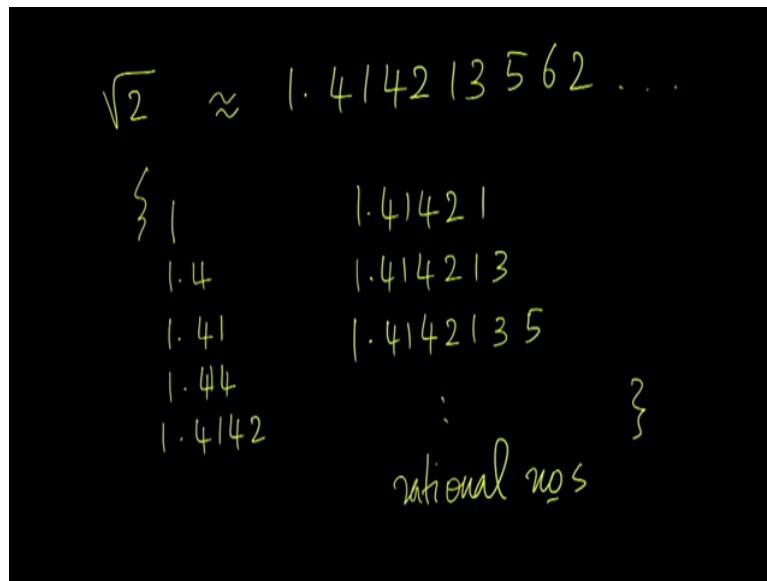 √2 ≈ 1.414213562...
{ 1
1.4
1.41
1.44
1.4142
1.41421
1.414213
1.4142135
: }
rational nos